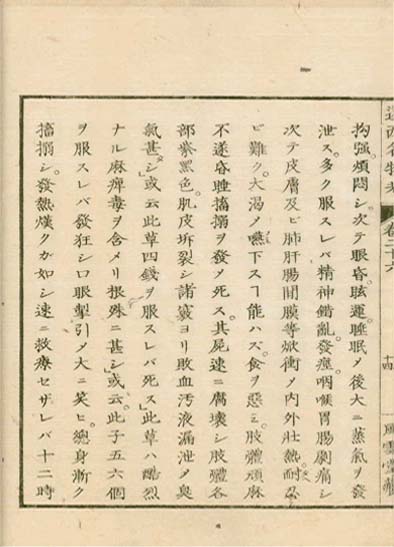 拘强煩悶シ。次テ眼昏。眩運。睡眠メ後大ニ蒸氣ヲ發
泄ス。多ク服スレバ精神錯亂。發痙。咽喉胃腸劇痛シ
次テ皮膚及ビ肺肝腸間膜等焮衝メ内外壯熱。耐忍
ビ難ク。大渴メ嚥下スヿ能ハズ。食ヲ惡ミ。肢體頑麻
不遂。昏睡搐搦ヲ發メ死ス。其屍速ニ腐壞シ肢體各
部紫黑色。肌皮坼裂シ諸竅ヨリ敗血汚液漏泄メ臭
氣甚シ」或云此草四錢ヲ服スレバ死ス」此草ハ酷烈
ナル麻痺毒ヲ含メリ根殊ニ甚シ」或云。此子五六個
ヲ服スレバ發狂シ口眼掣引メ大ニ笑ヒ。總身漸ク
搐搦シ。發熱煠クガ如シ速ニ救療セザレバ十二時
西名物考
卷二十六
十四